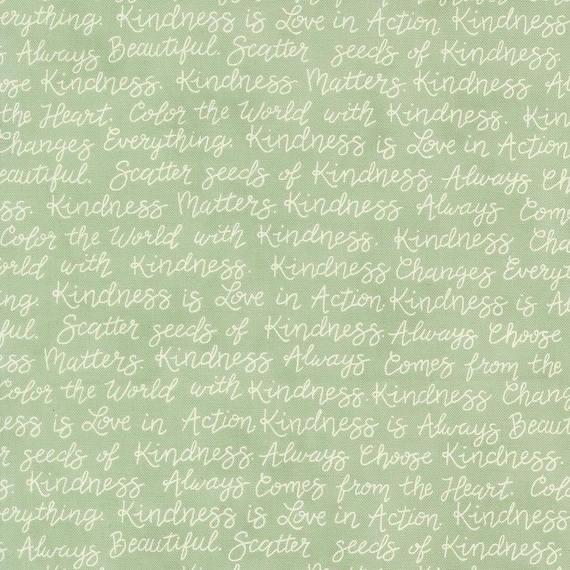 erything. Kindness is Love in Action Kindness
s Always Beautiful. Scatter seeds of Kindness.
ose Kindness. Kindness Matters. Kindness Al
the Heart. Color the World with Kindness. Kin
Changes Everything. Kindness is Love in Action
eautiful. Scatter seeds of Kindness. Always Ch
ss. Kindness Matters. Kindness Always Com
Color the World with Kindness. Kindness Cha
orld with Kindness. Kindness Changes Everyt
ng. Kindness is Love in Action Kindness is A
ful. Scatter seeds of Kindness. Always Choose
ess Matters. Kindness Always Comes from the
Color the World with Kindness. Kindness Chang
ess is Love in Action Kindness is Always Beaut
r seeds of Kindness. Always Choose Kindness.
s. Kindness Always Comes from the Heart. Col
erything. Kindness is Love in Action. Kindness
s Always Beautiful. Scatter seeds of Kindness.